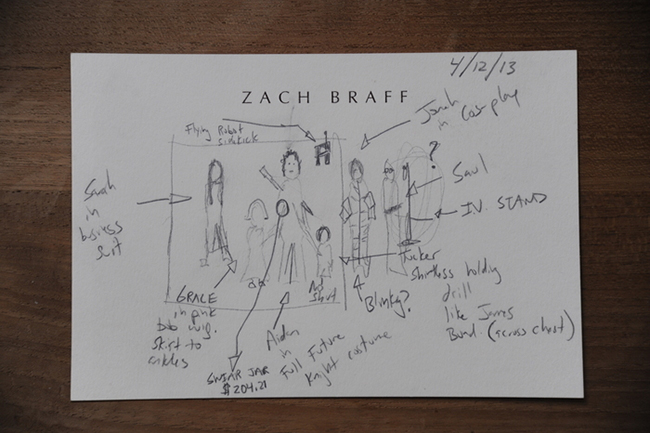 4/12/13
ZACH BRAFF
Jonah
in Cosplay
Flying Robot
Sidekick
?
Saul
I.V. STAND
Sarah
in
business
suit
Tucker
Shirtless holding
drill
like James
Bond. (across chest)
GRACE
in pink
bob wig.
skirt to
ankles
Blinky?
Aiden
in
Full Future
Knight costume
SWEAR JAR
$204.21